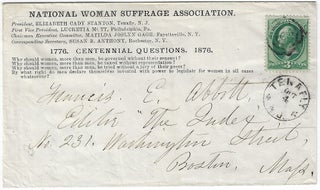 NATIONAL WOMAN SUFFRAGE ASSOCIATION.
President, ELIZABETH CADY STANTON, Tenafly, N. J.
First Vice President, LUCRETIA MOTT, Philadelphia, Pa.
Chairman Executive Committee, MATILDA JOSLYN GAGE, Fayetteville, N. Y.
Corresponding Secretary, SUSAN B. ANTHONY, Rochester, N. Y.
1776. CENTENNIAL QUESTIONS. 1876.
Why should women, more than men, be governed without their consent?
Why should women, more than men, be taxed without representation?
Why should women, more than men, be tried without a jury of their peers?
By what right do men declare themselves invested with power to legislate for women in all cases
whatsoever?
TENAFLY
N.J.
Francis E. Abbott,
Editor "The Index"
No. 231. Washington Street,
Boston.
Mass.